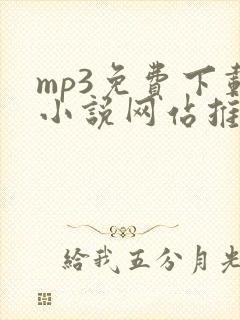 mp3免費下載
小說网佔推
給我五分月光